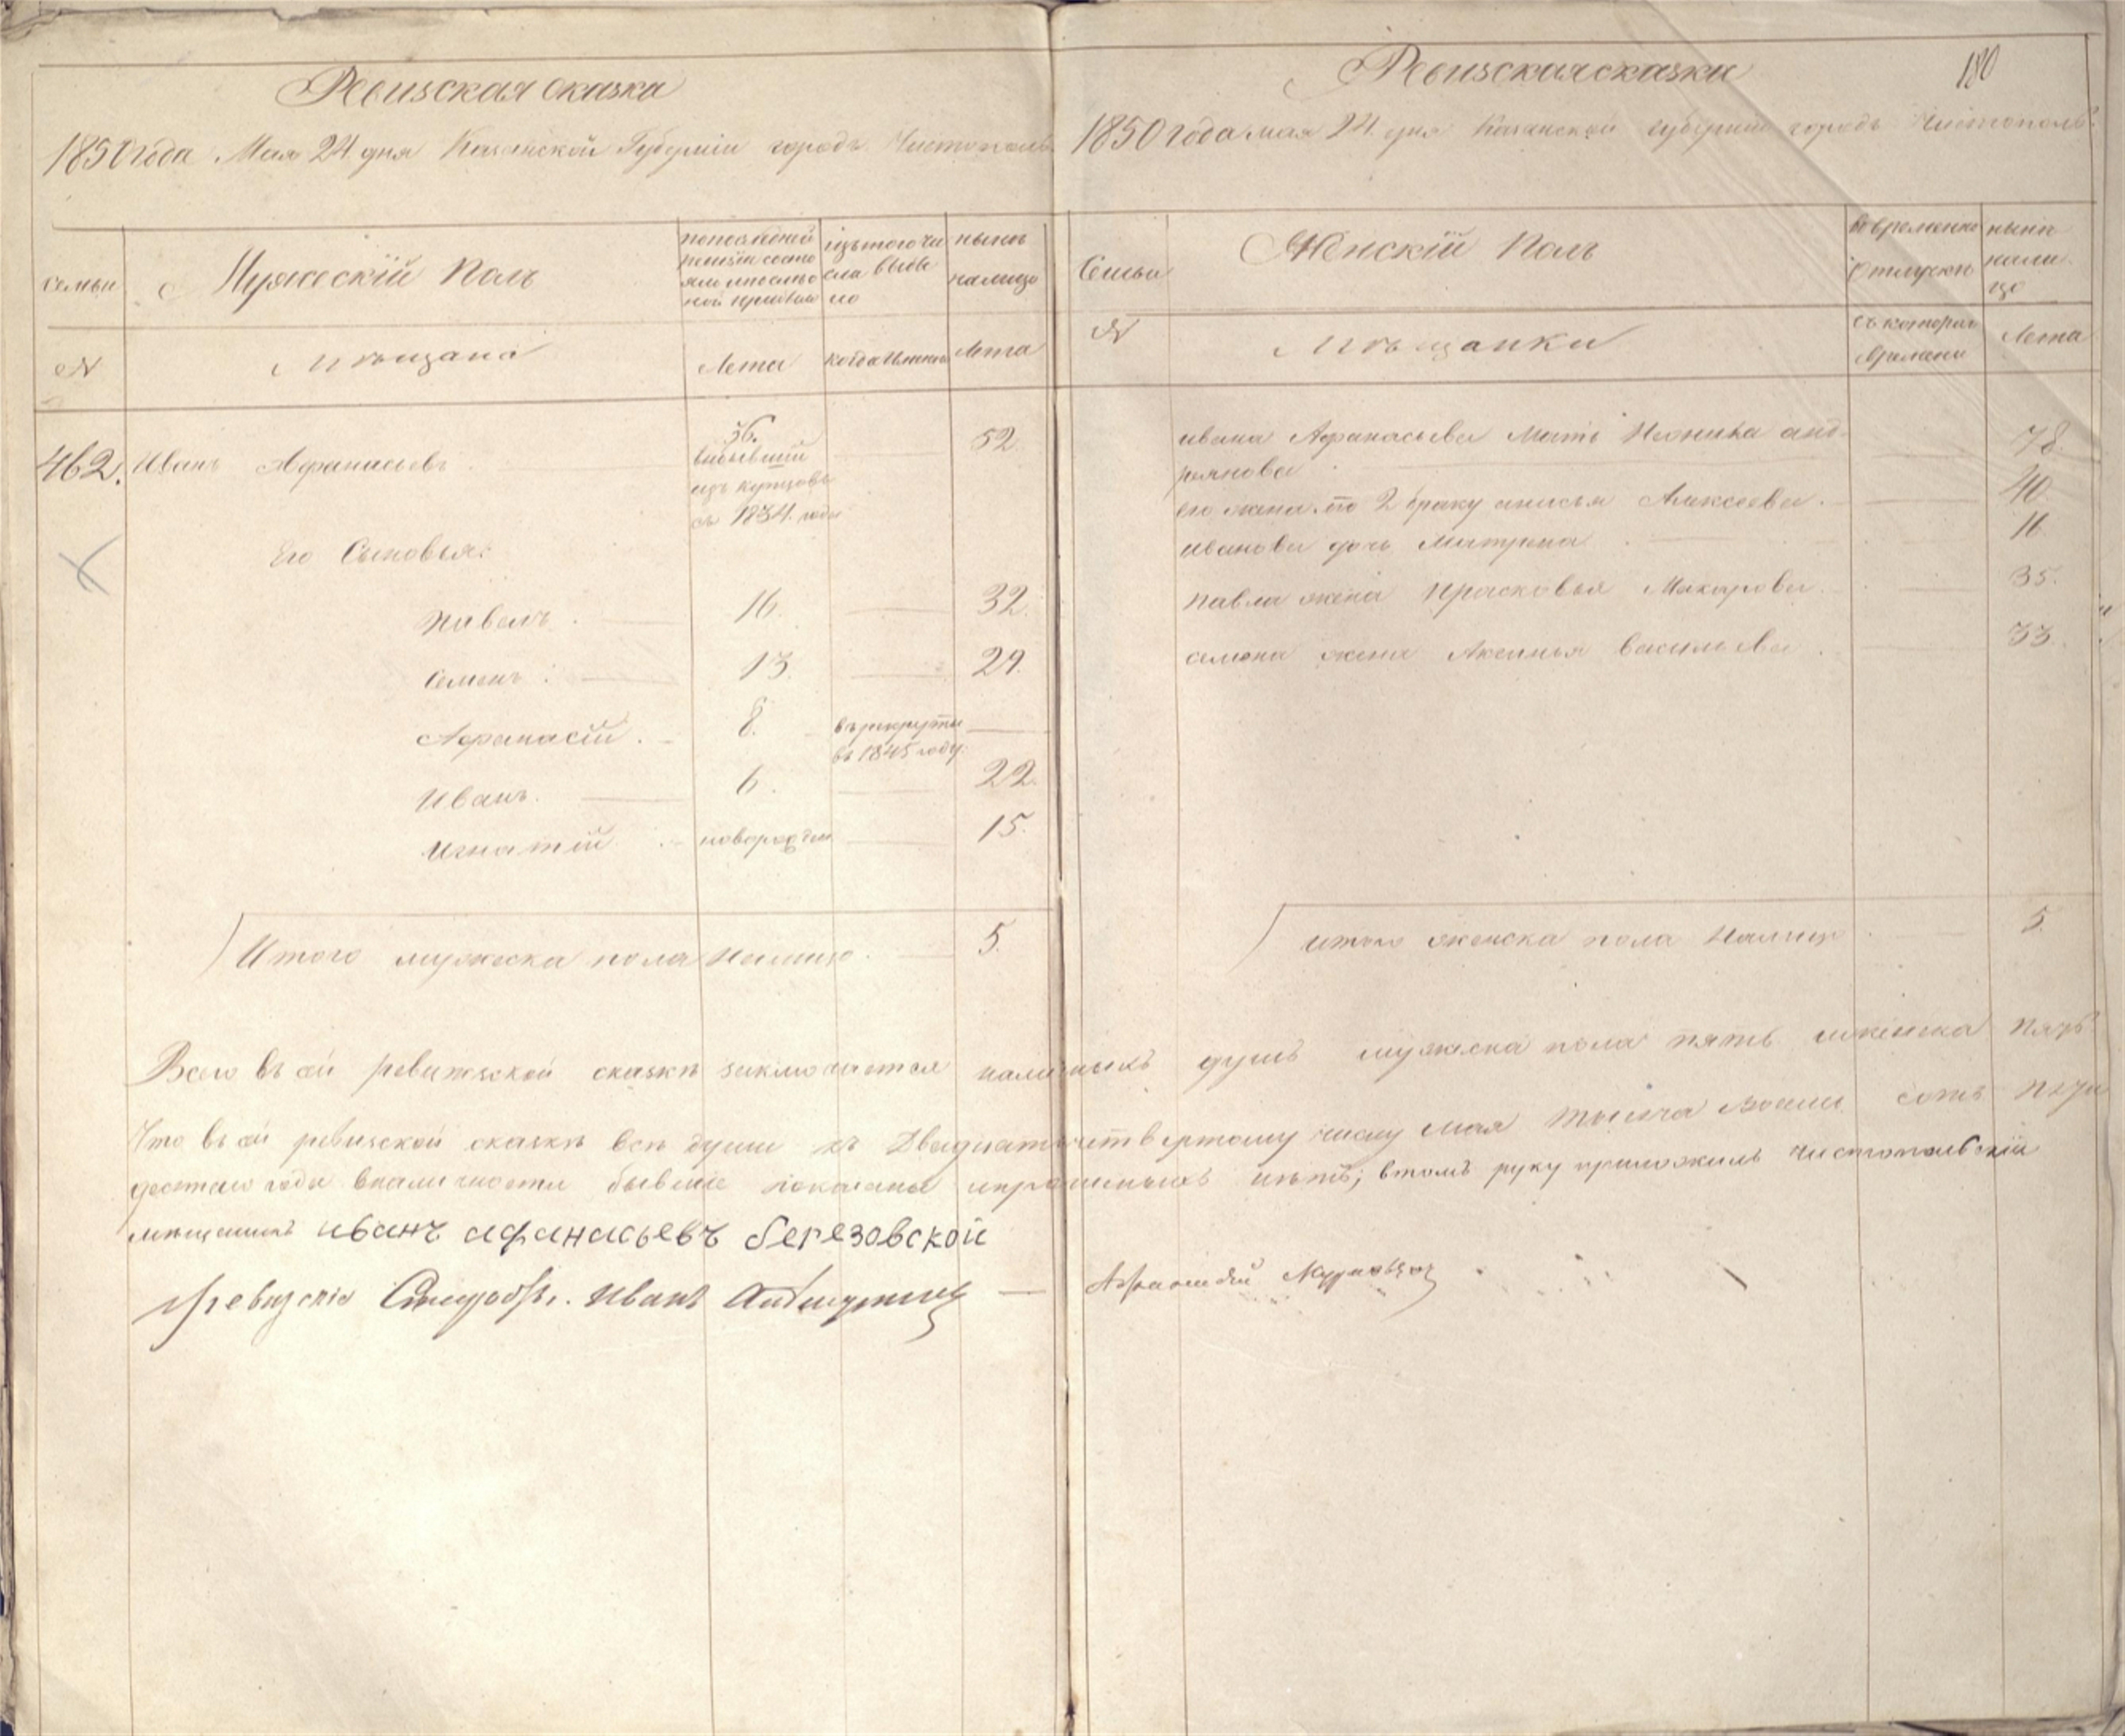 Ревизская сказка
1850 года Мая 24 дня Казанской Губернiи городъ Чистополь
семьи
Мужескiй Полъ
по последней ревизiи состояли
изъ того числа выбыло
нынѣ налицо
№
Мѣщана
Лета
когда именно
Лета
462. Иванъ Афанасьевъ 36. 52
выбывшiй
изъ купцовъ
съ 1834. года
Его Сыновья:
Павелъ. 16. 32.
Семенъ. 13. 29.
Афанасiй. 8. в рекруты
въ 1845 году.
Иванъ. 6. 22.
Игнатiй новорожден 15.
Итого мужеска пола налицо. 5.
Ревизская сказка
180
1850 года мая 24 дня Казанской губернiи городъ Чистополь
Семьи
Женскiй Полъ
Во временно отлучки
ныни налицо
№
Мѣщанки
съ котораго времени
Лета
ивана Афанасьева мать анд-
реянова 78.
его жена по 2 браку анисья Алексеева. 40.
иванова дочь Матрена 16
павла жена Прасковья Макарова. 35.
семена жена Аксинья васильева. 33.
итого женска пола налицо 5
Всего въ сей ревизской сказкѣ заключается наличныхъ душъ мужеска пола пять женска пять
Что въ сей ревизской сказкѣ всѣ души къ Двадцать четвертому числу мая тысяча восемь сотъ пяти
десятаго года вналичности бывшiе показаны ипрописныхъ нѣтъ; втомъ руку приложилъ чистопольскiй
мѣщанинъ иванъ афанасьевъ березовской
Иванъ